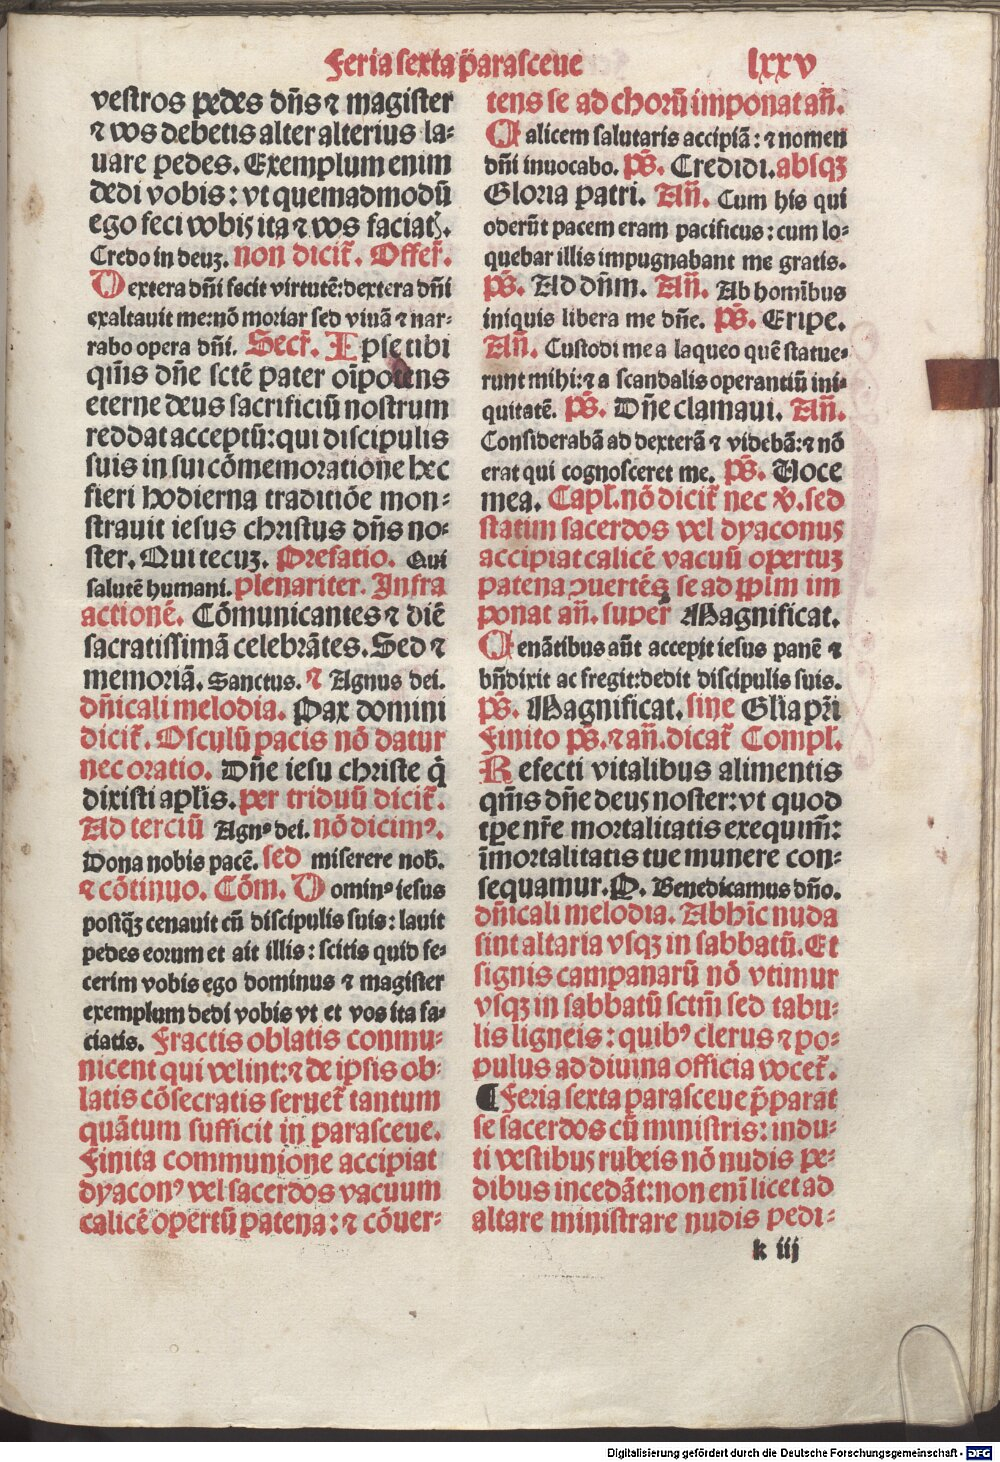 Feria sexta p̄arasceue
lxxv
vestros pedes dn̄s ⁊ magister
⁊ vos debetis alter alterius la⸗
uare pedes. Exemplum enim
dedi vobis: vt quemadmodū
ego feci vobis ita ⁊ vos faciatꝭ.
Credo in deuꝫ. non dicit᷑. Offer᷑.
Dextera dn̄i fecit virtutē: dextera dn̄i
exaltauit me: nō moriar sed viuā ⁊ nar⸗
rabo opera dn̄i. Secr᷑. Ipse tibi
qm̄s dn̄e sctē pater oīpotens
eterne deus sacrificiū nostrum
reddat acceptū: qui discipulis
suis in sui cōmemoratione hec
fieri hodierna traditiōe mon⸗
strauit iesus christus dn̄s no⸗
ster. Qui tecuꝫ. Prefatio. Qui
salutē humani. plenariter. Infra
actionē. Cōmunicantes ⁊ diē
sacratissimā celebrātes. Sed ⁊
memoriā. Sanctus. ⁊ Agnus dei.
dn̄icali melodia. Pax domini
dicit᷑. Osculū pacis nō datur
nec oratio. Dn̄e iesu christe q̄
dixisti apl̄is. per triduū dicit᷑.
Ad terciū Agnꝰ dei. nō dicimꝰ.
Dona nobis pacē. sed miserere nob̄.
⁊ cōtinuo. Cōm. Dominꝰ iesus
postqꝫ cenauit cū discipulis suis: lauit
pedes eorum et ait illis: scitis quid fe⸗
cerim vobis ego dominus ⁊ magister
exemplum dedi vobis vt et vos ita fa⸗
ciatis. Fractis oblatis conmu⸗
nicent qui velint: ⁊ de ipsis ob⸗
latis cōsecratis seruet᷑ tantum
quātum sufficit in parasceue.
Finita communione accipiat
dyaconꝰ vel sacerdos vacuum
calicē opertū patena: ⁊ cōuer⸗
tens se ad chorū imponat an̄.
Calicem salutaris accipiā: ⁊ nomen
dn̄i inuocabo. ps̄. Credidi. absqꝫ
Gloria patri. An̄. Cum his qui
oderūt pacem eram pacificus: cum lo⸗
quebar illis impugnabant me gratis.
ps̄. Ad dn̄m. An̄. Ab homībus
iniquis libera me dn̄e. ps̄. Eripe.
An̄. Custodi me a laqueo quē statue⸗
runt mihi: ⁊ a scandalis operantiū ini⸗
quitatē. ps̄. Dn̄e clamaui. An̄.
Considerabā ad dexterā ⁊ videbā: ⁊ nō
erat qui cognosceret me. ps̄. Uoce
mea. Capl̄. nō dicit᷑ nec v̄. sed
statim sacerdos vel dyaconus
accipiat calicē vacuū opertuꝫ
patena ꝯuertēs se ad pplm im
ponat an̄. super᷑ Magnificat.
Cenātibus aūt accepit iesus panē ⁊
bn̄dixit ac fregit: dedit discipulis suis.
ps̄. Magnificat. sine Gl̄ia pr̄i
Finito ps̄. ⁊ an̄. dicat᷑ Compl̄.
Refecti vitalibus alimentis
qm̄s dn̄e deus noster: vt quod
tp̄e nr̄e mortalitatis exequim̄:
īmortalitatis tue munere con⸗
sequamur. P. Benedicamus dn̄o.
dn̄icali melodia. Abhīc nuda
sint altaria vsqꝫ in sabbatū. Et
signis campanarū nō vtimur
vsqꝫ in sabbatū sctm̄ sed tabu⸗
lis ligneis: quibꝰ clerus ⁊ po⸗
pulus ad diuina officia vocet᷑.
¶ Feria sexta parasceue p̄parat
se sacerdos cū ministris: indu⸗
ti vestibus rubeis nō nudis pe⸗
dibus incedāt: non enī licet ad
altare ministrare nudis pedi⸗
k iij
Digitalisierung gefördert durch die Deutsche Forschungsgemeinschaft - DFG